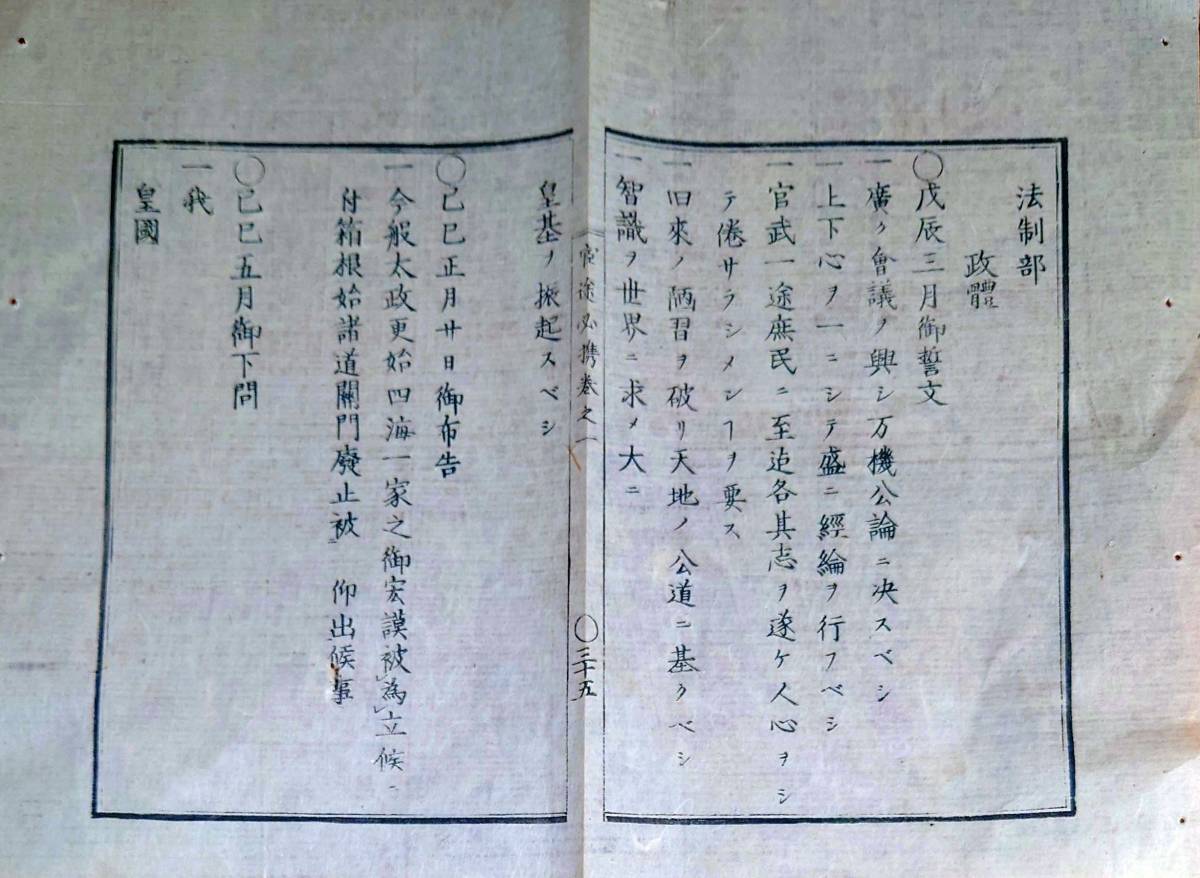 法制部
政體
〇戊辰三月御誓文
一廣ク會議ヲ興シ万機公論ニ决スベシ
一上下心ヲ一ニシテ盛ニ經綸ヲ行フベシ
一官武一途庶民ニ至迠各其志ヲ遂ケ人心ヲシ
テ倦サラシメンヿヲ要ス
一旧來ノ陋習ヲ破リ天地ノ公道ニ基クベシ
一智識ヲ世界ニ求メ大ニ
皇基ヲ振起スベシ
官途必携卷之一
〇三十五
〇己巳正月廿日御布告
一今般太政更始四海一家之御宏謨被為立候ニ
付箱根始諸道關門廢止被 仰出候事
〇己巳五月御下問
一我
皇國